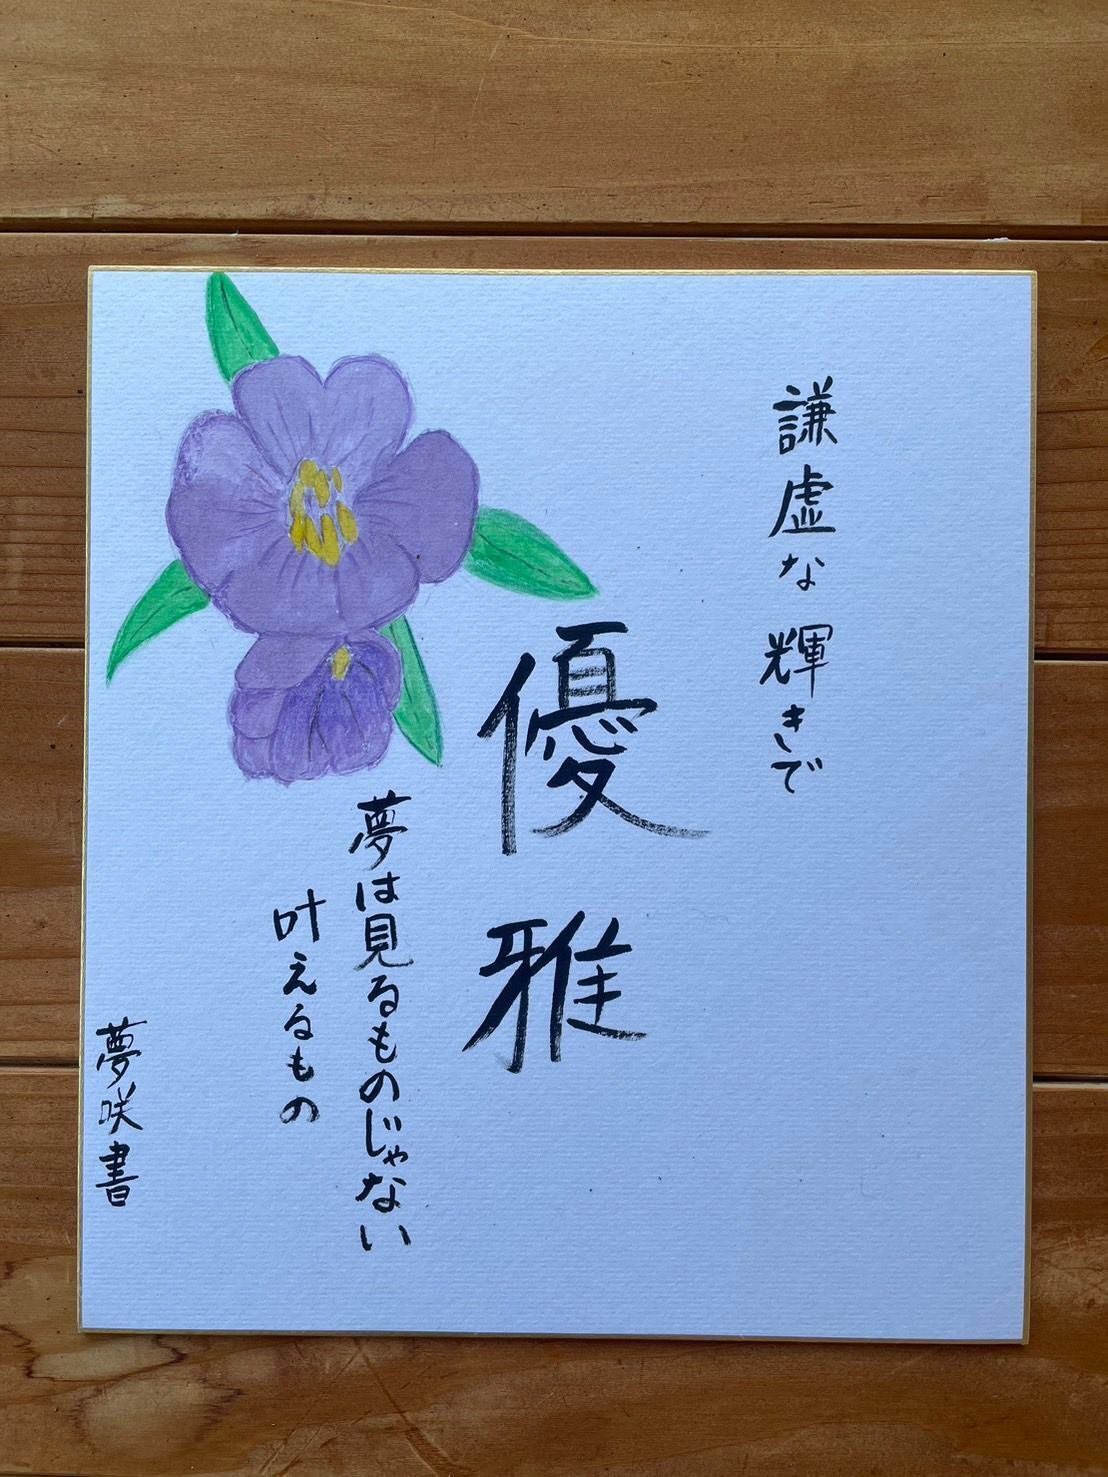 謙虚な輝きで
優雅
夢は見るものじゃない
叶えるもの
夢咲書